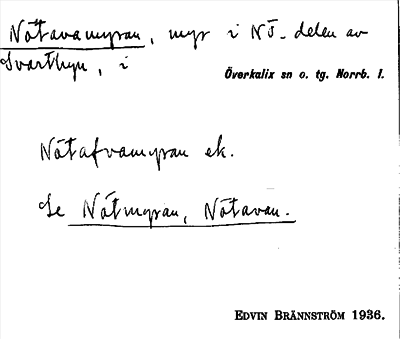 Nötavamyran, myr i NÖ-delen av
Svartbyn, i
Överkalix sn o. tg. Norrb. l.
Nötafvamyran ek.
Se Nötmyran, Nötavan.
EDVIN BRÄNNSTRÖM 1936.